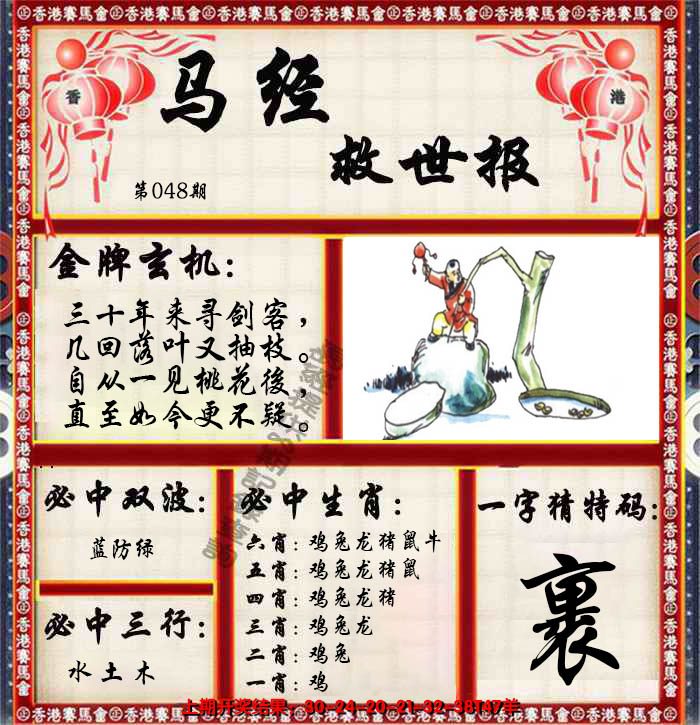 香港賽馬會
香 港
马经
救世报
第048期
金牌玄机：
三十年来寻剑客，
几回落叶又抽枝。
自从一见桃花後，
直至如今更不疑。
必中双波：
蓝防绿
必中三行：
水土木
必中生肖：
六肖：鸡兔龙猪鼠牛
五肖：鸡兔龙猪鼠
四肖：鸡兔龙猪
三肖：鸡兔龙
二肖：鸡兔
一肖：鸡
一字猜特码：
裹
上期开奖结果：30-24-20-21-32-38T47羊